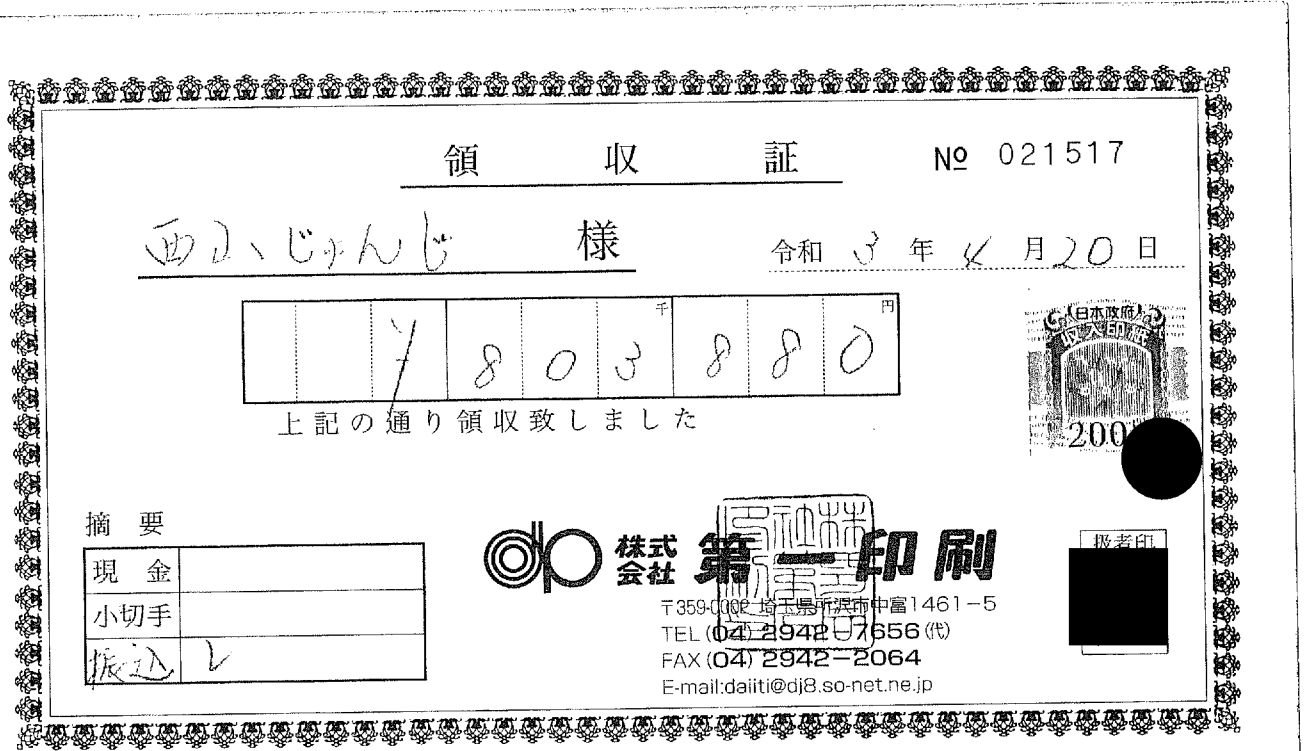 領収証 № 021517
西山じゅんじ 様
令和 3 年 4 月 20 日
千 円
¥803880
上記の通り領収致しました
日本政府
収入印紙
200
摘要
現金
小切手
振込 レ
dp 株式会社 第一印刷
〒359-0002 埼玉県所沢市中富1461-5
TEL (04) 2942-7656 (代)
FAX (04) 2942-2064
E-mail:daiiti@dj8.so-net.ne.jp
扱者印